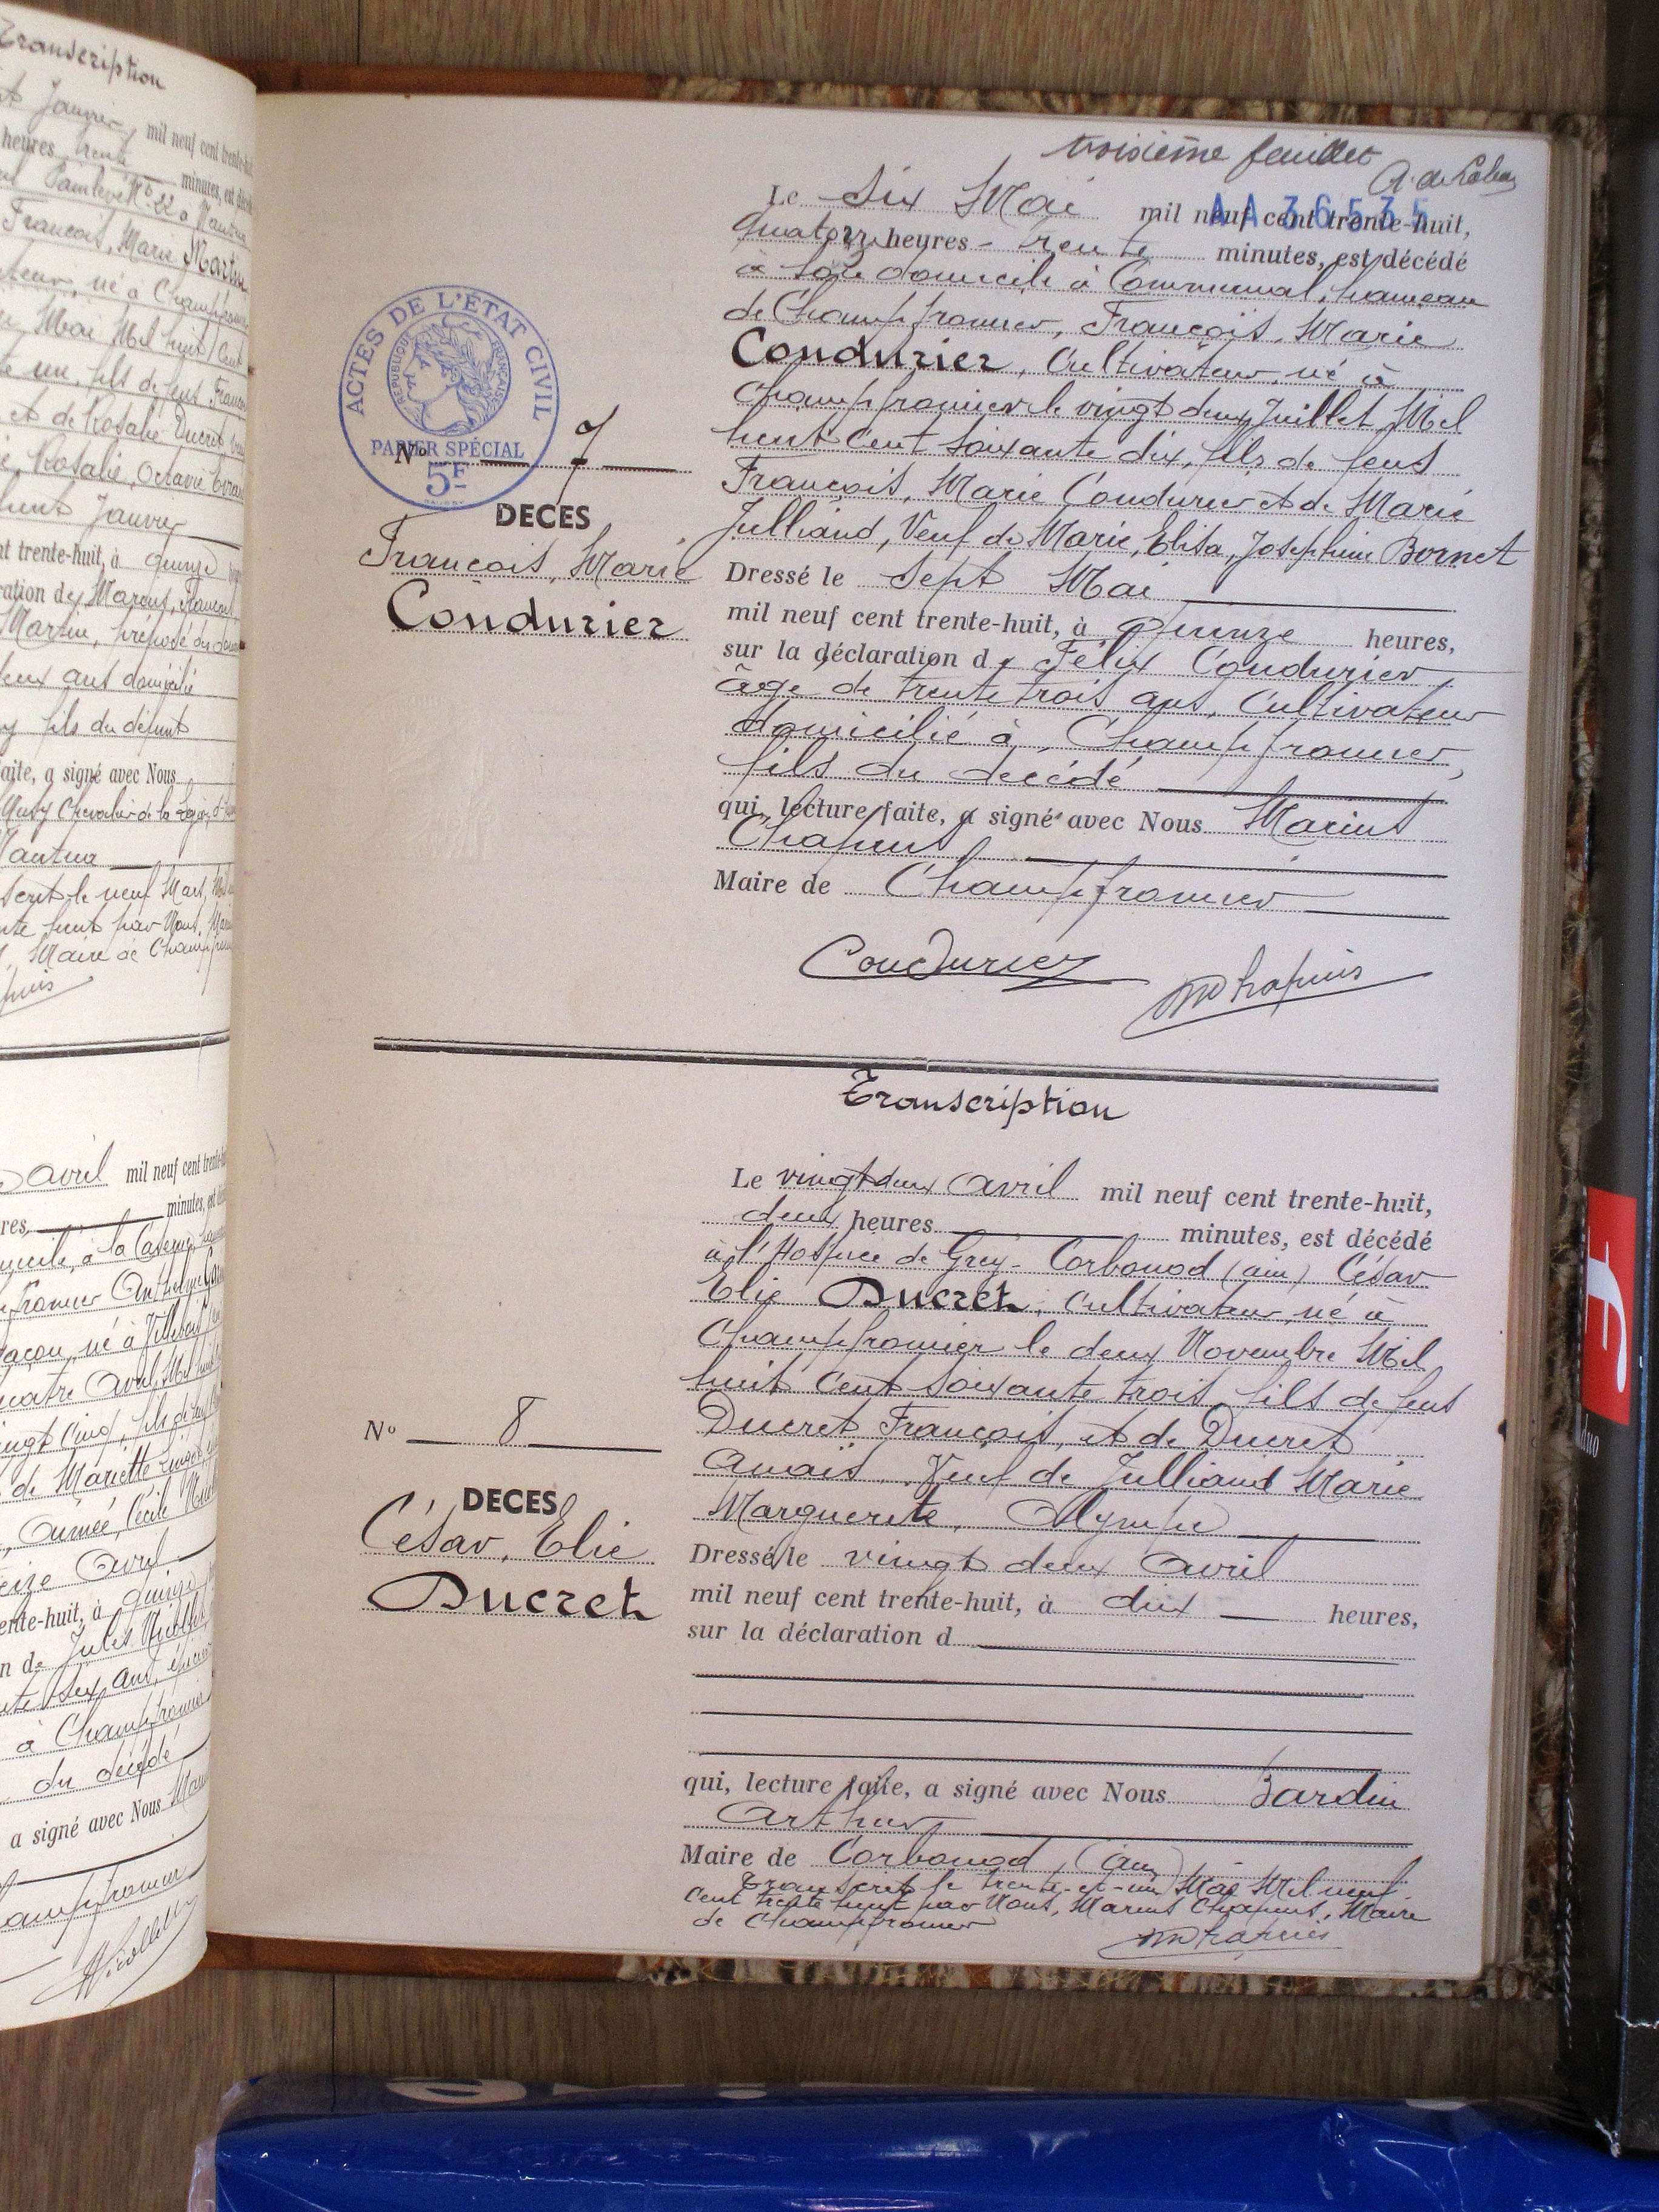 Transcription
Janvier, mil neuf cent trente-huit
heures trente minutes, est décédé
François, Marie Martin
né à Champfromier
Mai Mil huit cent
un, fils de feus François
et de Rosalie Ducret
Rosalie, Octavie
huit Janvier
trente-huit, à quinze
Martin, préposé des
deux ans domicilié
fils du défunt
faite, a signé avec Nous
Chevalier de la Légion d'
Nantua
le neuf Mars
par Nous
Maire de Champfromier
avril mil neuf cent trente
minutes, est
à la Caserne
né à Villebois
quatre Avril Mil huit
vingt cinq, fils de feu
de Mariette
Aimée, Cécile
seize Avril
trente-huit, à quinze
de Jules Nicollet
six ans
à Champfromier
du décédé
a signé avec Nous
Champfromier
Nicollet
troisième feuillet
AA 36535
Le Six Mai mil neuf cent trente-huit,
quatorze heures trente minutes, est décédé
à son domicile à Communal, hameau
de Champfromier, François, Marie
Condurier, Cultivateur, né à
Champfromier le vingt deux Juillet Mil
huit cent soixante dix, fils de feus
François, Marie Condurier et de Marie
Julliand, Veuf de Marie, Elisa, Joséphine Bornet
Dressé le Sept Mai
mil neuf cent trente-huit, à quinze heures,
sur la déclaration de Félix Condurier
âgé de trente trois ans, Cultivateur
domicilié à Champfromier,
fils du décédé
qui, lecture faite, a signé avec Nous Marius
Chapuis
Maire de Champfromier
Condurier
M Chapuis
ACTES DE L'ÉTAT CIVIL
RÉPUBLIQUE FRANÇAISE
PAPIER SPÉCIAL
5F
No 7
DECES
François, Marie
Condurier
Transcription
Le vingt deux Avril mil neuf cent trente-huit,
deux heures minutes, est décédé
à l'Hospice de Grex-Corbonod (ain) César
Elie Ducret, Cultivateur, né à
Champfromier le deux Novembre Mil
huit cent soixante trois, fils de feus
Ducret François, et de Ducret
Anaïs, Veuf de Julliand Marie
Marguerite, Olympe
Dressé le vingt deux Avril
mil neuf cent trente-huit, à dix heures,
sur la déclaration d
qui, lecture faite, a signé avec Nous Bardin
Arthur
Maire de Corbonod (ain)
Transcrit le trente-et-un Mai Mil neuf
cent trente huit par Nous, Marius Chapuis, Maire
de Champfromier
M Chapuis
No 8
DECES
César, Elie
Ducret